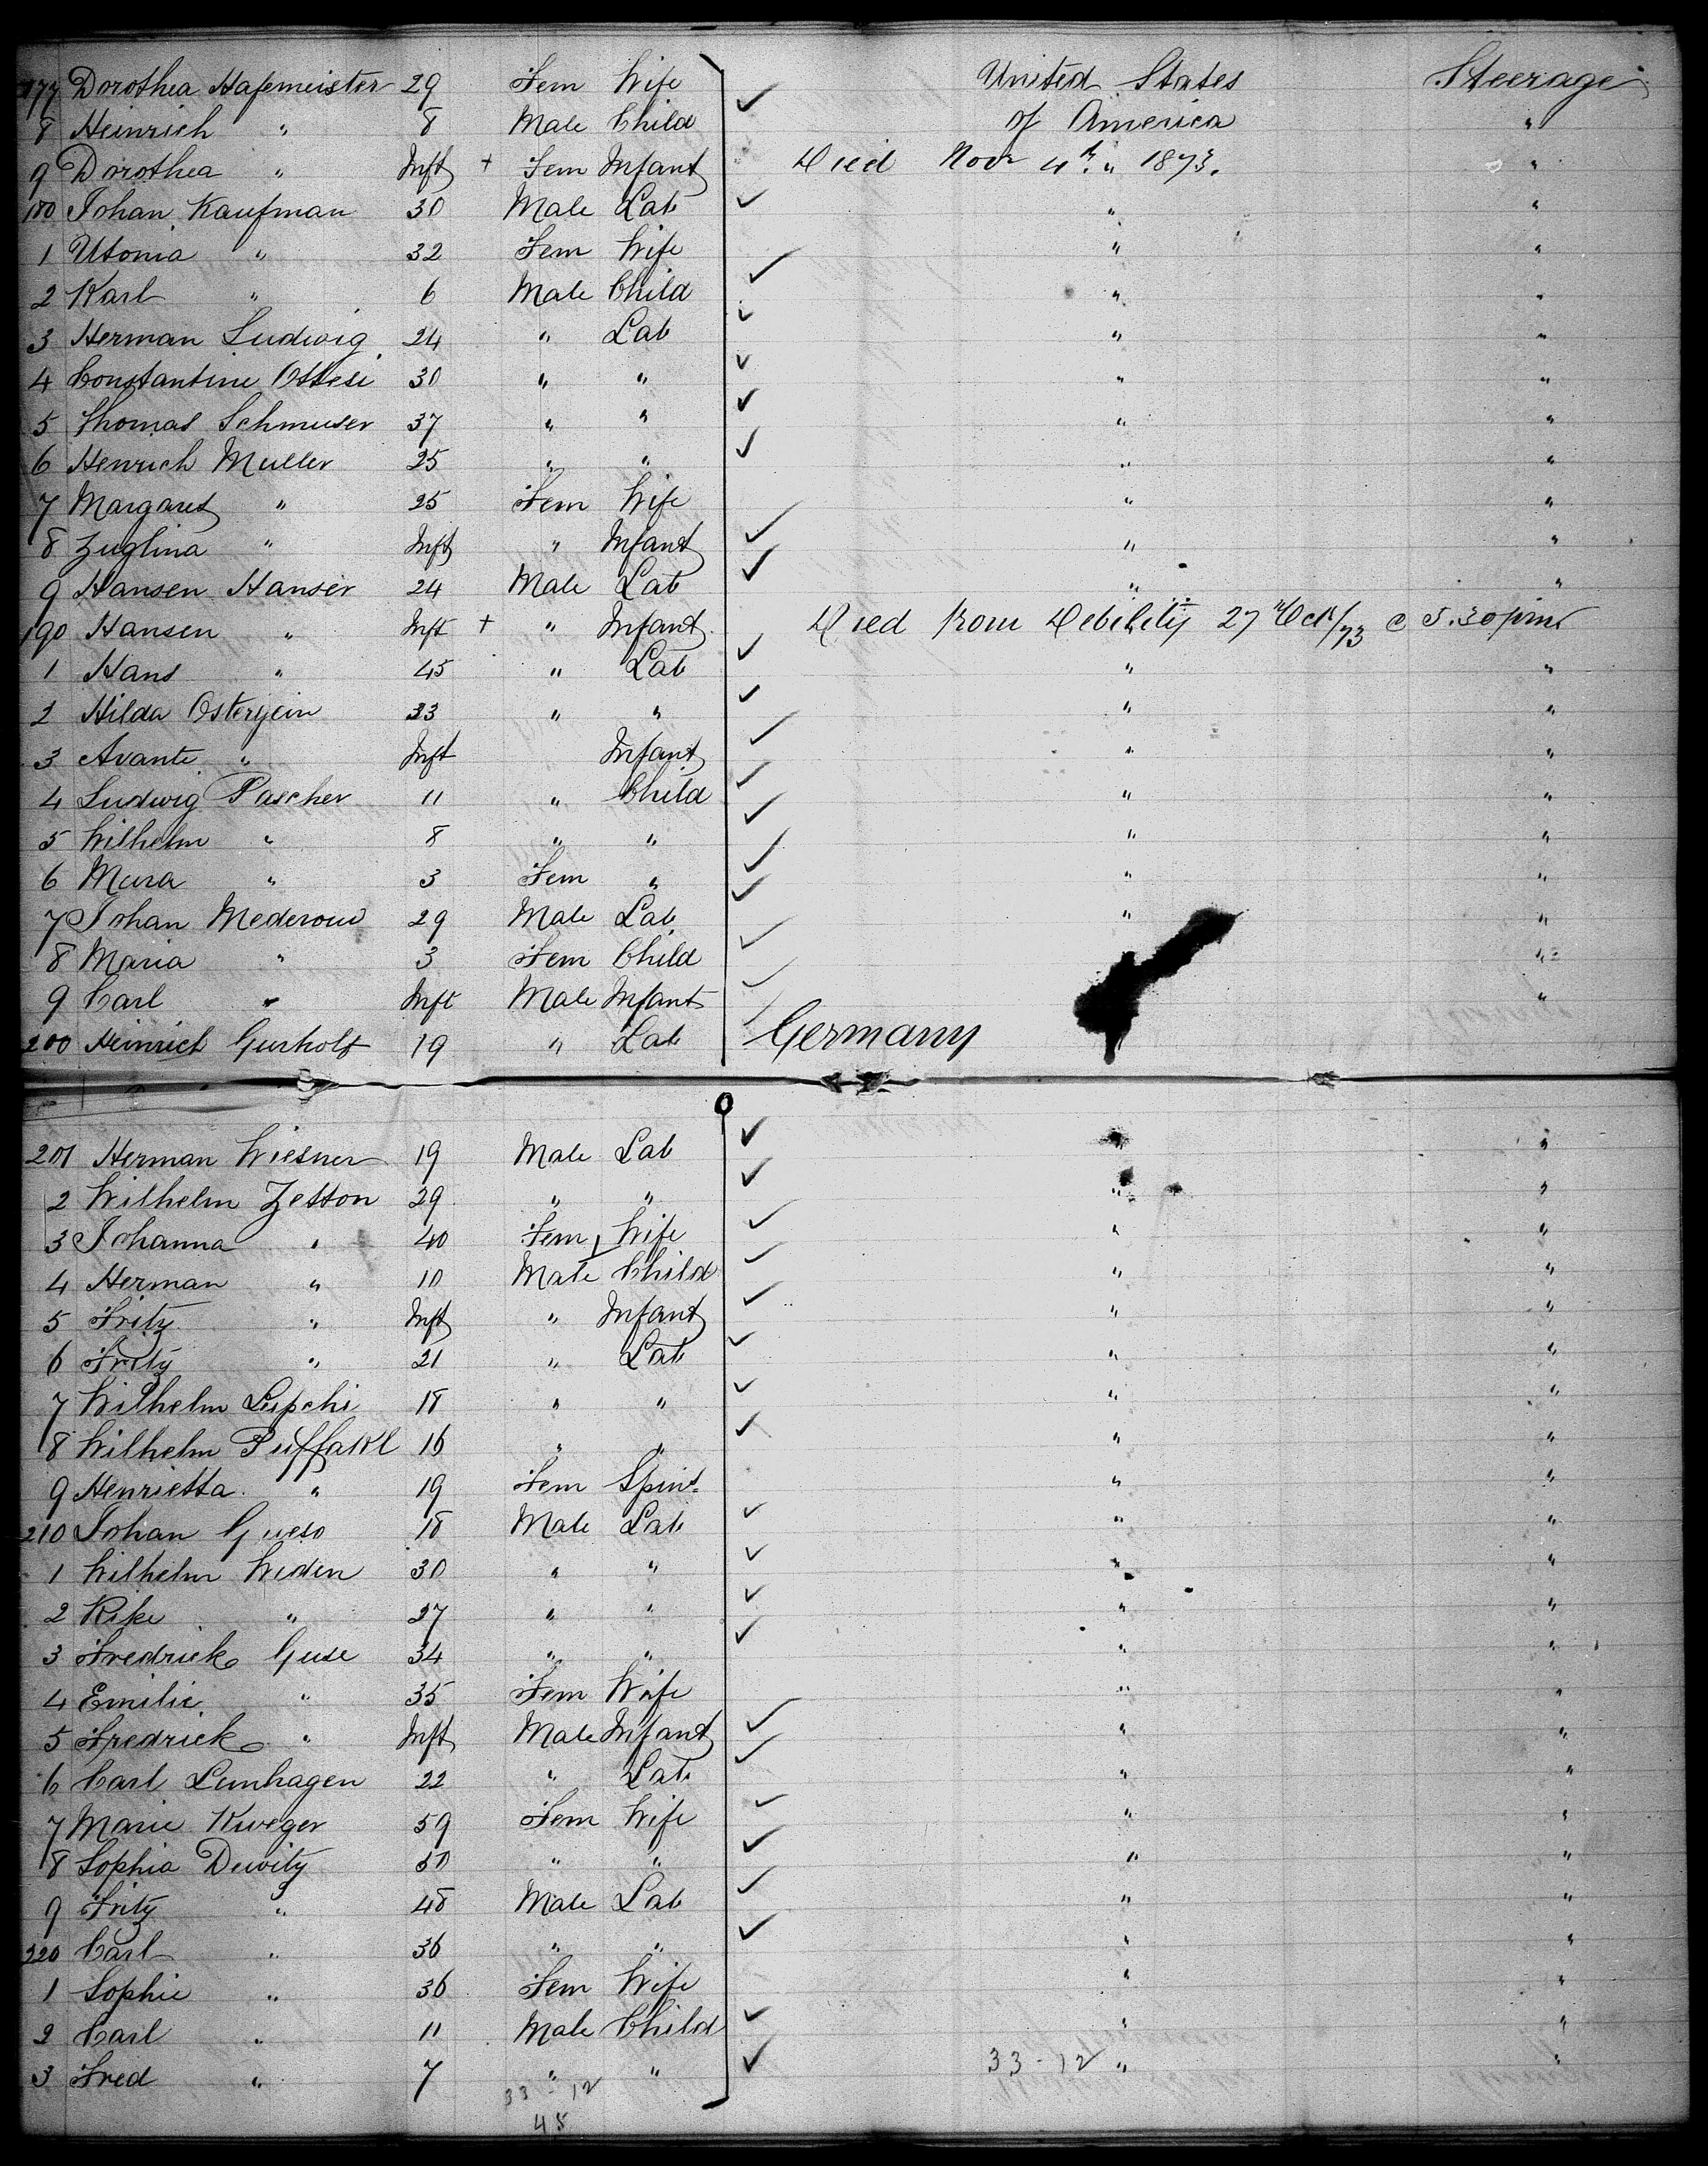 177 Dorothea Hafemeister 29 Fem Wife United States Steerage
8 Heinrich " 8 Male Child of America "
9 Dorothea " Inft + Fem Infant Died Novr 4th " 1873. "
180 Johan Kaufman 30 Male Lab " "
1 Utonia " 32 Fem Wife " "
2 Karl " 6 Male Child " "
3 Herman Ludwig 24 " Lab " "
4 Constantine Ottesi 30 " " " "
5 Thomas Schmuser 37 " " " "
6 Henrich Muller 25 " " " "
7 Margaret " 25 Fem Wife " "
8 Zuglina " Inft " Infant " "
9 Hansen Hanser 24 Male Lab " "
190 Hansen " Inft + " Infant Died from Debility 27th Oct/73 @ 5.30 pm
1 Hans " 45 " Lab " "
2 Hilda Ostergein 23 " " " "
3 Avante " Inft " Infant " "
4 Ludwig Pascher 11 " Child " "
5 Wilhelm " 8 " " " "
6 Mara " 3 Fem " " "
7 Johan Mederow 29 Male Lab " "
8 Maria " 3 Fem Child "
9 Carl " Inft Male Infant "
200 Heinrich Gurholt 19 " Lab Germany
201 Herman Wiesner 19 Male Lab " "
2 Wilhelm Zetton 29 " " " "
3 Johanna " 40 Fem Wife " "
4 Herman " 10 Male Child " "
5 Fritz " Inft " Infant " "
6 Fritz " 21 " Lab " "
7 Wilhelm Lupchi 18 " " " "
8 Wilhelm Puffakl 16 " " " "
9 Henrietta " 19 Fem Spin " "
210 Johan Gueso 18 Male Lab " "
1 Wilhelm Weden 30 " " " "
2 Rike " 27 " " " "
3 Fredrick Guse 34 " " " "
4 Emilie " 35 Fem Wife " "
5 Fredrick " Inft Male Infant " "
6 Carl Lenhagen 22 " Lab " "
7 Marie Kweger 59 Fem Wife " "
8 Sophia Dewitz 50 " " " "
9 Fritz " 48 Male Lab " "
220 Carl " 36 " " " "
1 Sophie " 36 Fem Wife " "
2 Carl " 11 Male Child " "
3 Fred " 7 " " 33-12 " "
33-12
45